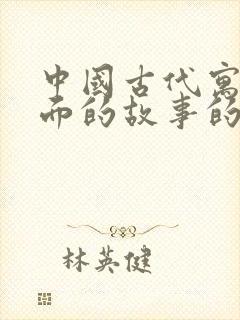 中國古代寓
而的故事的
林英健